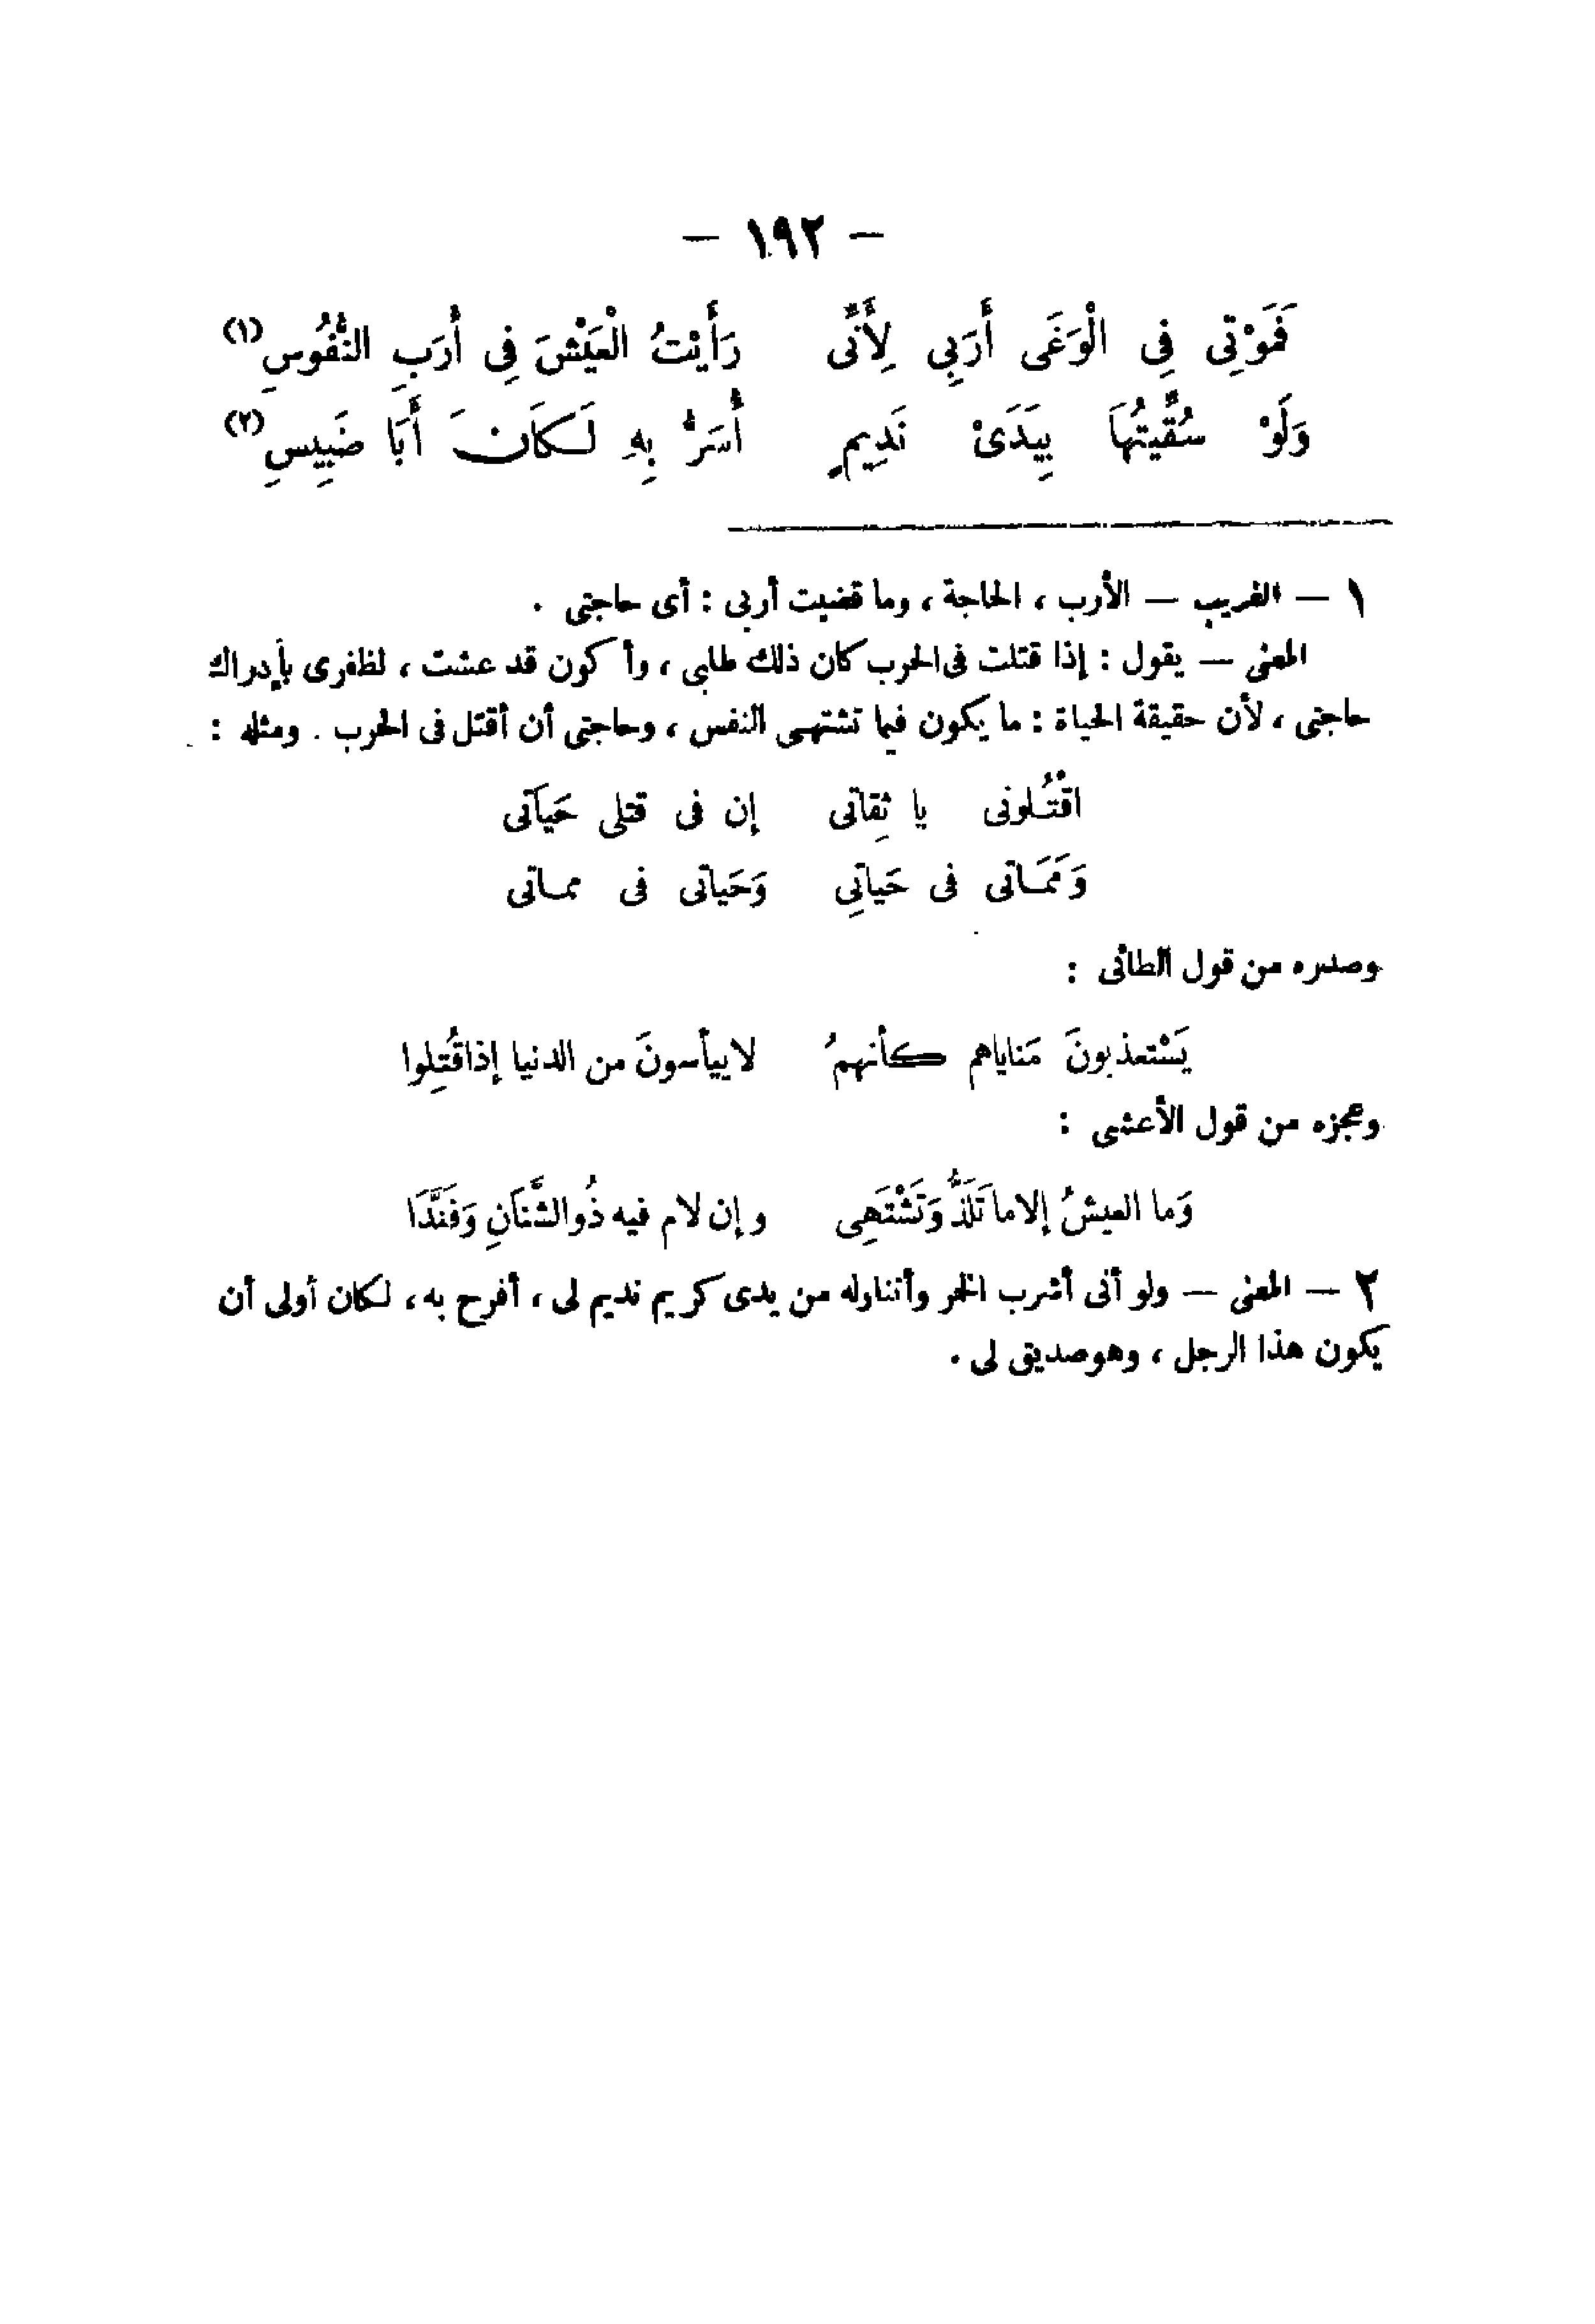 – ١٩٢ –
فَمَوْتِى فِى الْوَغَى أَرَبِى لِأَنِّى رَأَيْتُ الْعَيْشَ فِى أَرَبِ النُّفُوسِ (١)
وَلَوْ سُقِّيتُهَا بِيَدَىْ نَدِيمٍ أُسَرُّ بِهِ لَكَانَ أَبَا ضَبِيسِ (٢)
١ – الغريب – الأرب ، الحاجة ، وما قضيت أربى : أى حاجتى .
المعنى – يقول : إذا قتلت فى الحرب كان ذلك طلبى ، وأكون قد عشت ، لظفرى بإدراك
حاجتى ، لأن حقيقة الحياة : ما يكون فيما تشتهى النفس ، وحاجتى أن أقتل فى الحرب . ومثله :
اقْتُلونى يا ثِقاتى إن فى قتلى حَيَاتى
وَمَمَاتى فى حَياتِى وَحَياتى فى مماتى
وصدره من قول الطائى :
يَسْتعذبونَ مَناياهم كأنهمُ لا ييأسونَ من الدنيا إذا قُتِلوا
وعجزه من قول الأعشى :
وَما العيشُ إلا ما تَلَذُّ وَتَشْتَهِى وإن لام فيه ذُو الشَّنَانِ وَفَنَّدَا
٢ – المعنى – ولو أنى أشرب الخمر وأتناوله من يدى كريم نديم لى ، أفرح به ، لكان أولى أن
يكون هذا الرجل ، وهو صديق لى .